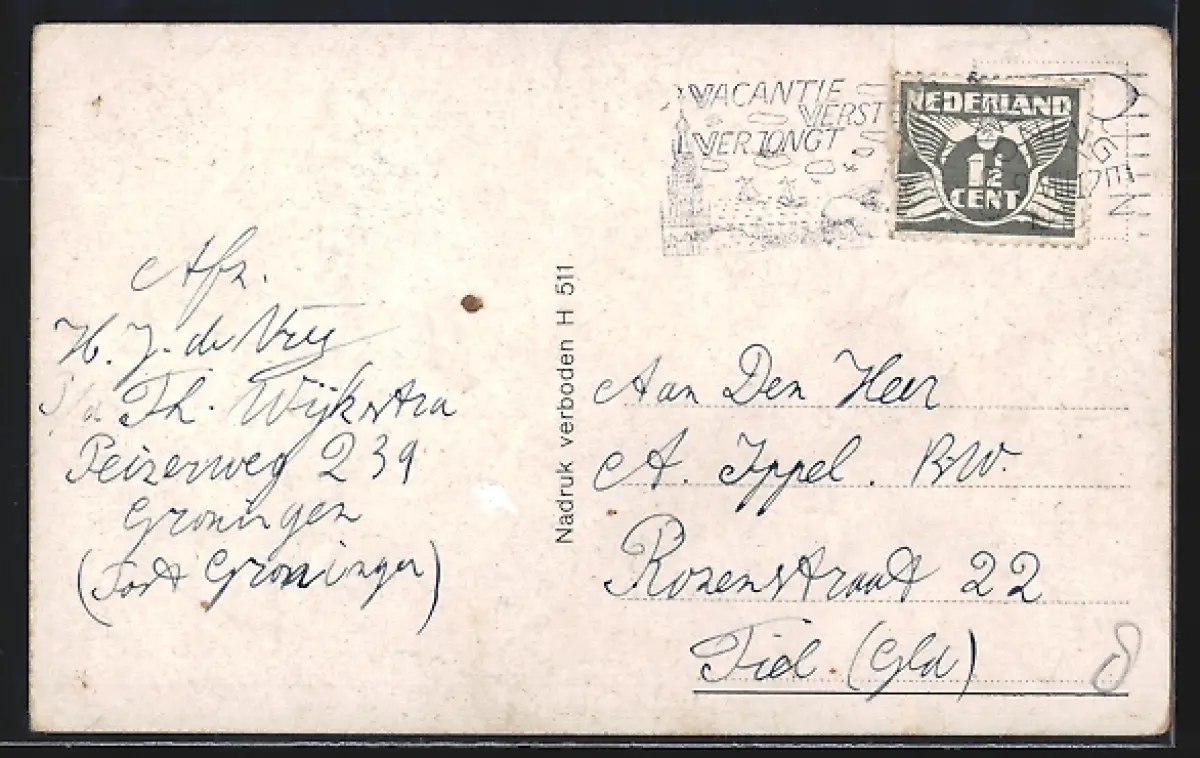 VACANTIE
VERST
VERJONGT
NEDERLAND
1½
CENT
Afz.
H. J. de Vrij
p/a Th. Wijkstra
Peizerweg 239
Groningen
(Post Groningen)
Nadruk verboden H 511
Aan Den Heer
A. Ippel. BW.
Rozenstraat 22
Tiel. (Gld)
8